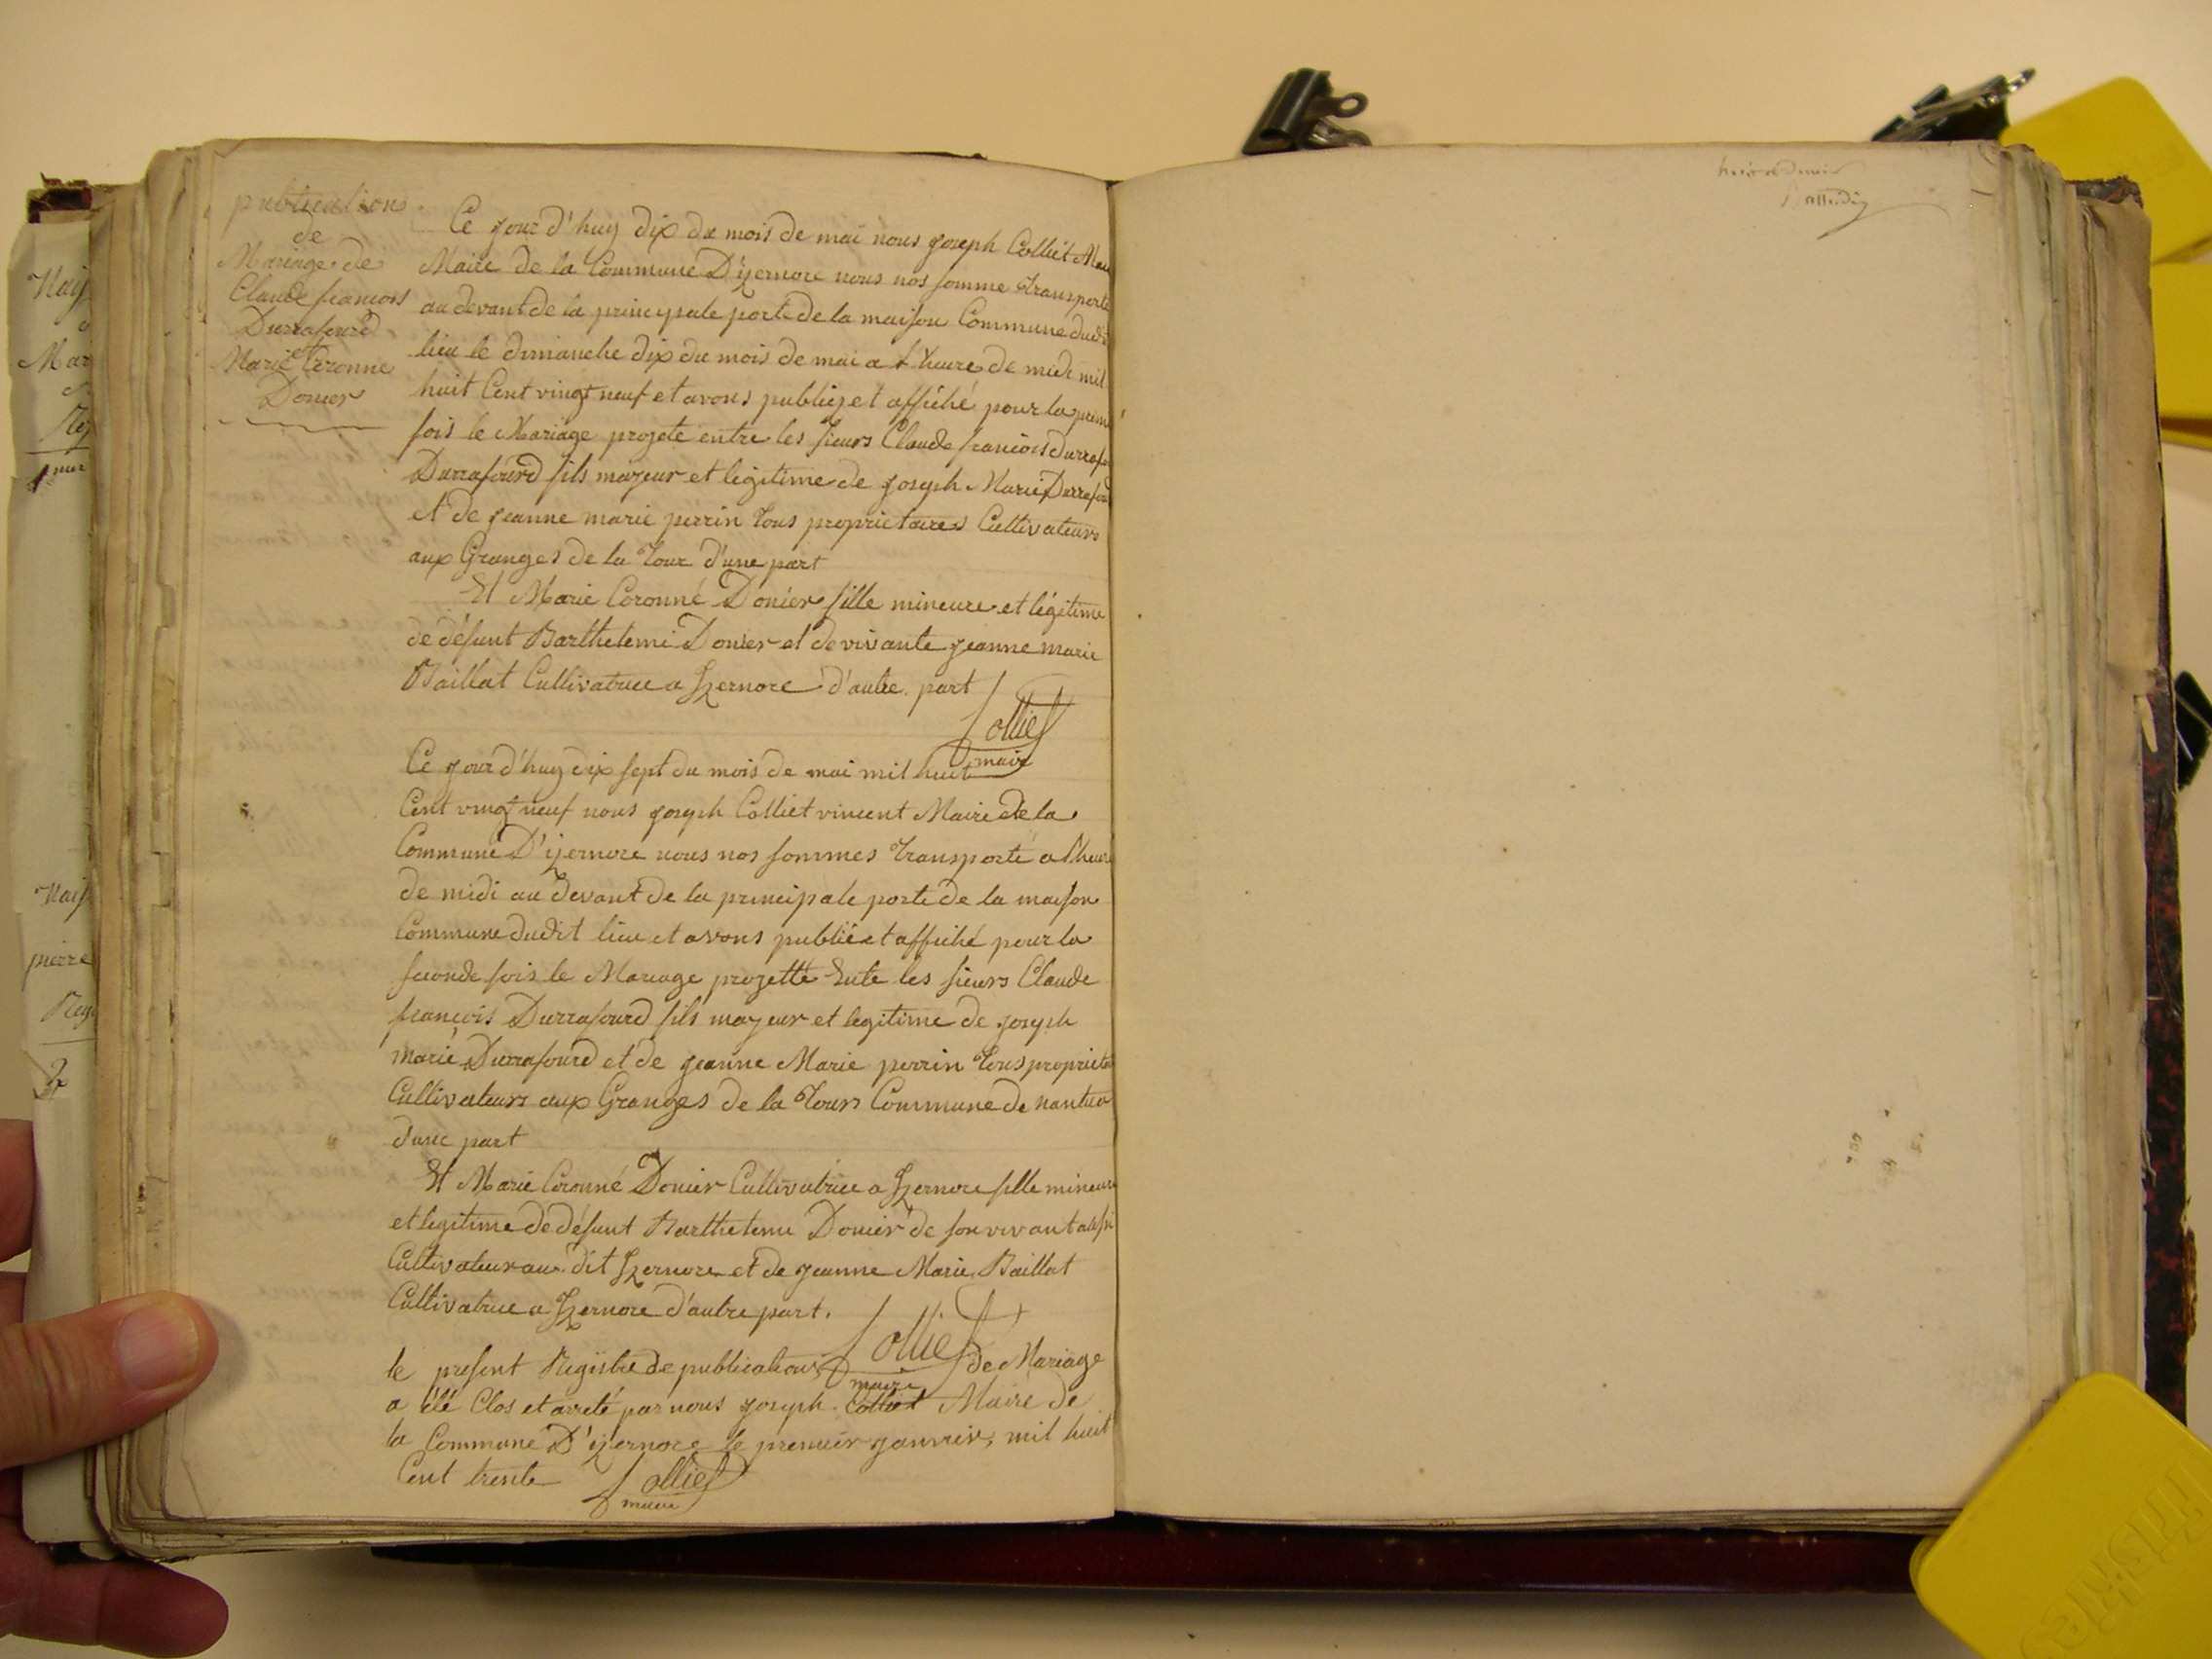 publications
de
Mariage de
Claude francois
Durrafourd
et
Marie Coronne
Donier
Ce jour d'huy dix du mois de mai nous joseph Colliet
Maire de la Commune D'izernore nous nos somme transporté
au devant de la principale porte de la maison Commune dudit
lieu le dimanche dix du mois de mai a l'heure de midi mil
huit Cent vingt neuf et avons publiez et affiché pour la prem
fois le Mariage projeté entre les sieurs Claude francois Durrafo
Durrafourd fils majeur et legitime de joseph Marie Durrafou
et de jeanne marie perrin tous proprietaires Cultivateurs
aux Granges de la tour d'une part
Et Marie Coronné Donier fille mineure et légitime
de défunt Barthelemi Donier et de vivante jeanne marie
Baillat Cultivatrice a Izernore d'autre part
Colliet
maire
Ce jour d'huy dix sept du mois de mai mil huit
Cent vingt neuf nous joseph Colliet vincent Maire de la
Commune D'izernore nous nos sommes transporté a l'heure
de midi au devant de la principale porte de la maison
Commune dudit lieu et avons publié et affiché pour la
seconde fois le Mariage projetté Entre les sieurs Claude
francois Durrafourd fils majeur et legitime de joseph
marie Durrafourd et de jeanne Marie perrin tous proprieta
Cultivateurs aux Granges de la tours Commune de nantua
d'une part
Et Marie Coronné Donier Cultivatrice a Izernore fille mineure
et legitime de défunt Barthelemi Donier de son vivant aussi
Cultivateur au dit Izernore et de jeanne Marie Baillat
Cultivatrice a Izernore d'autre part.
Colliet
maire
le present Registre de publications de Mariage
a été Clos et arreté par nous joseph Colliet Maire de
la Commune D'izernore le premier janvier, mil huit
Cent trente
Colliet
maire
Naiss
Mar
Reg
1
Naiss
pierre
Reg
2
FISKARS